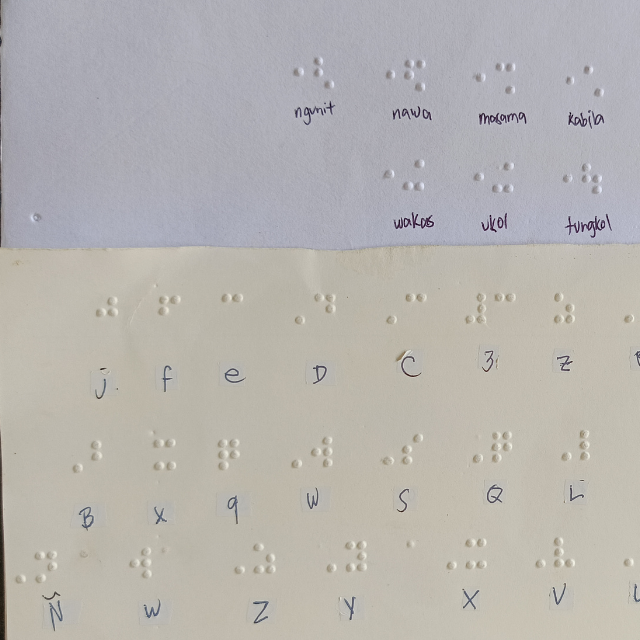 ngunit nawa masama kabila
wakas ukol tungkol
j. f e D C 3 z
B x q W S Q L
Ñ w Z Y X V